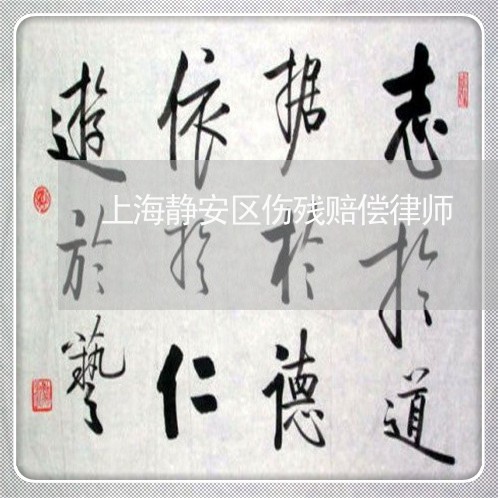 志於道
据於德
依於仁
遊於藝
上海静安区伤残赔偿律师